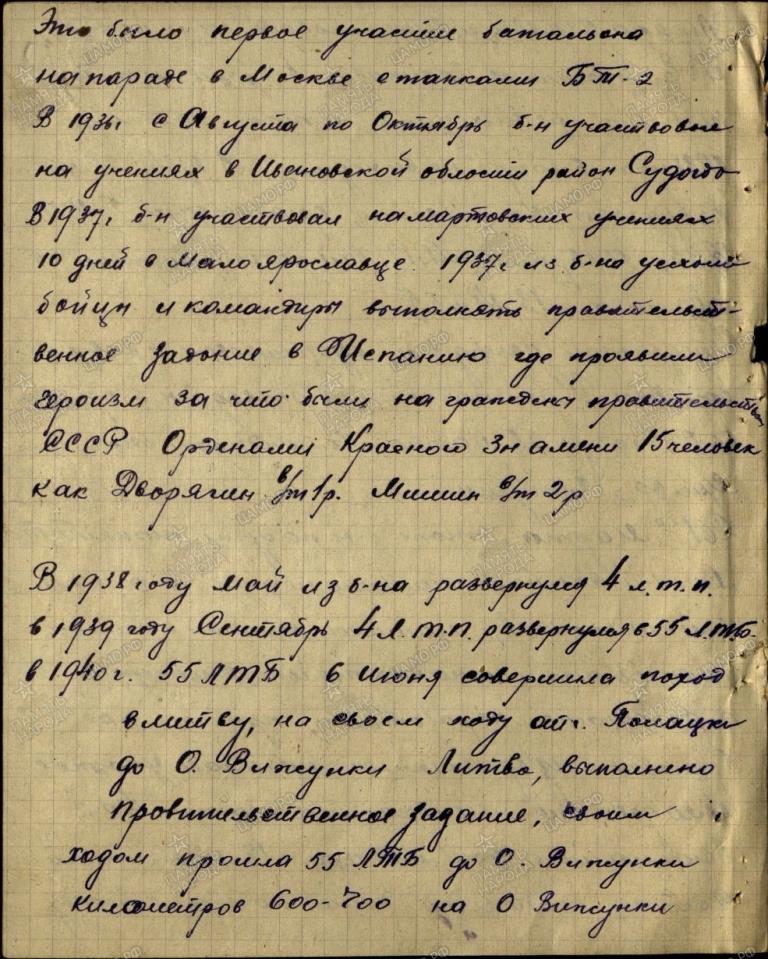 Это было первое участие батальона
на параде в Москве с танками БТ-2
В 1936г с Августа по Октябрь б-н участвовал
на учениях в Ивановской области район Судогда
В 1937г б-н участвовал на мартовских учениях
10 дней в Малоярославце. 1937г из б-на уехали
бойцы и командиры выполнять правительст-
венное задание в Испанию где проявили
героизм за что были награждены правительством
СССР Орденами Красного Знамени 15 человек
как Дворягин в/т 1р. Мишин в/т 2р
В 1938 году май из б-на развернулся 4 л.т.п.
в 1939 году Сентябрь 4 Л.т.п. развернулся в 55 Л.ТБ.
в 1940г. 55 ЛТБ 6 июня совершила поход
в литву, на своем ходу от г. Полацки
до О. Вижунки Литва, выполнено
правительственное задание, своим
ходом прошла 55 ЛТБ до О. Вижунки
километров 600-700 на О Вижунки